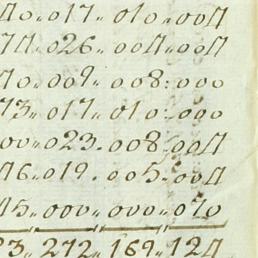 40..017..010..004
74..026..004..004
40..009..008:000
73..017..010:000
00..023.008:004
46..019.005..004
45..000..000..070
23..272..169..124